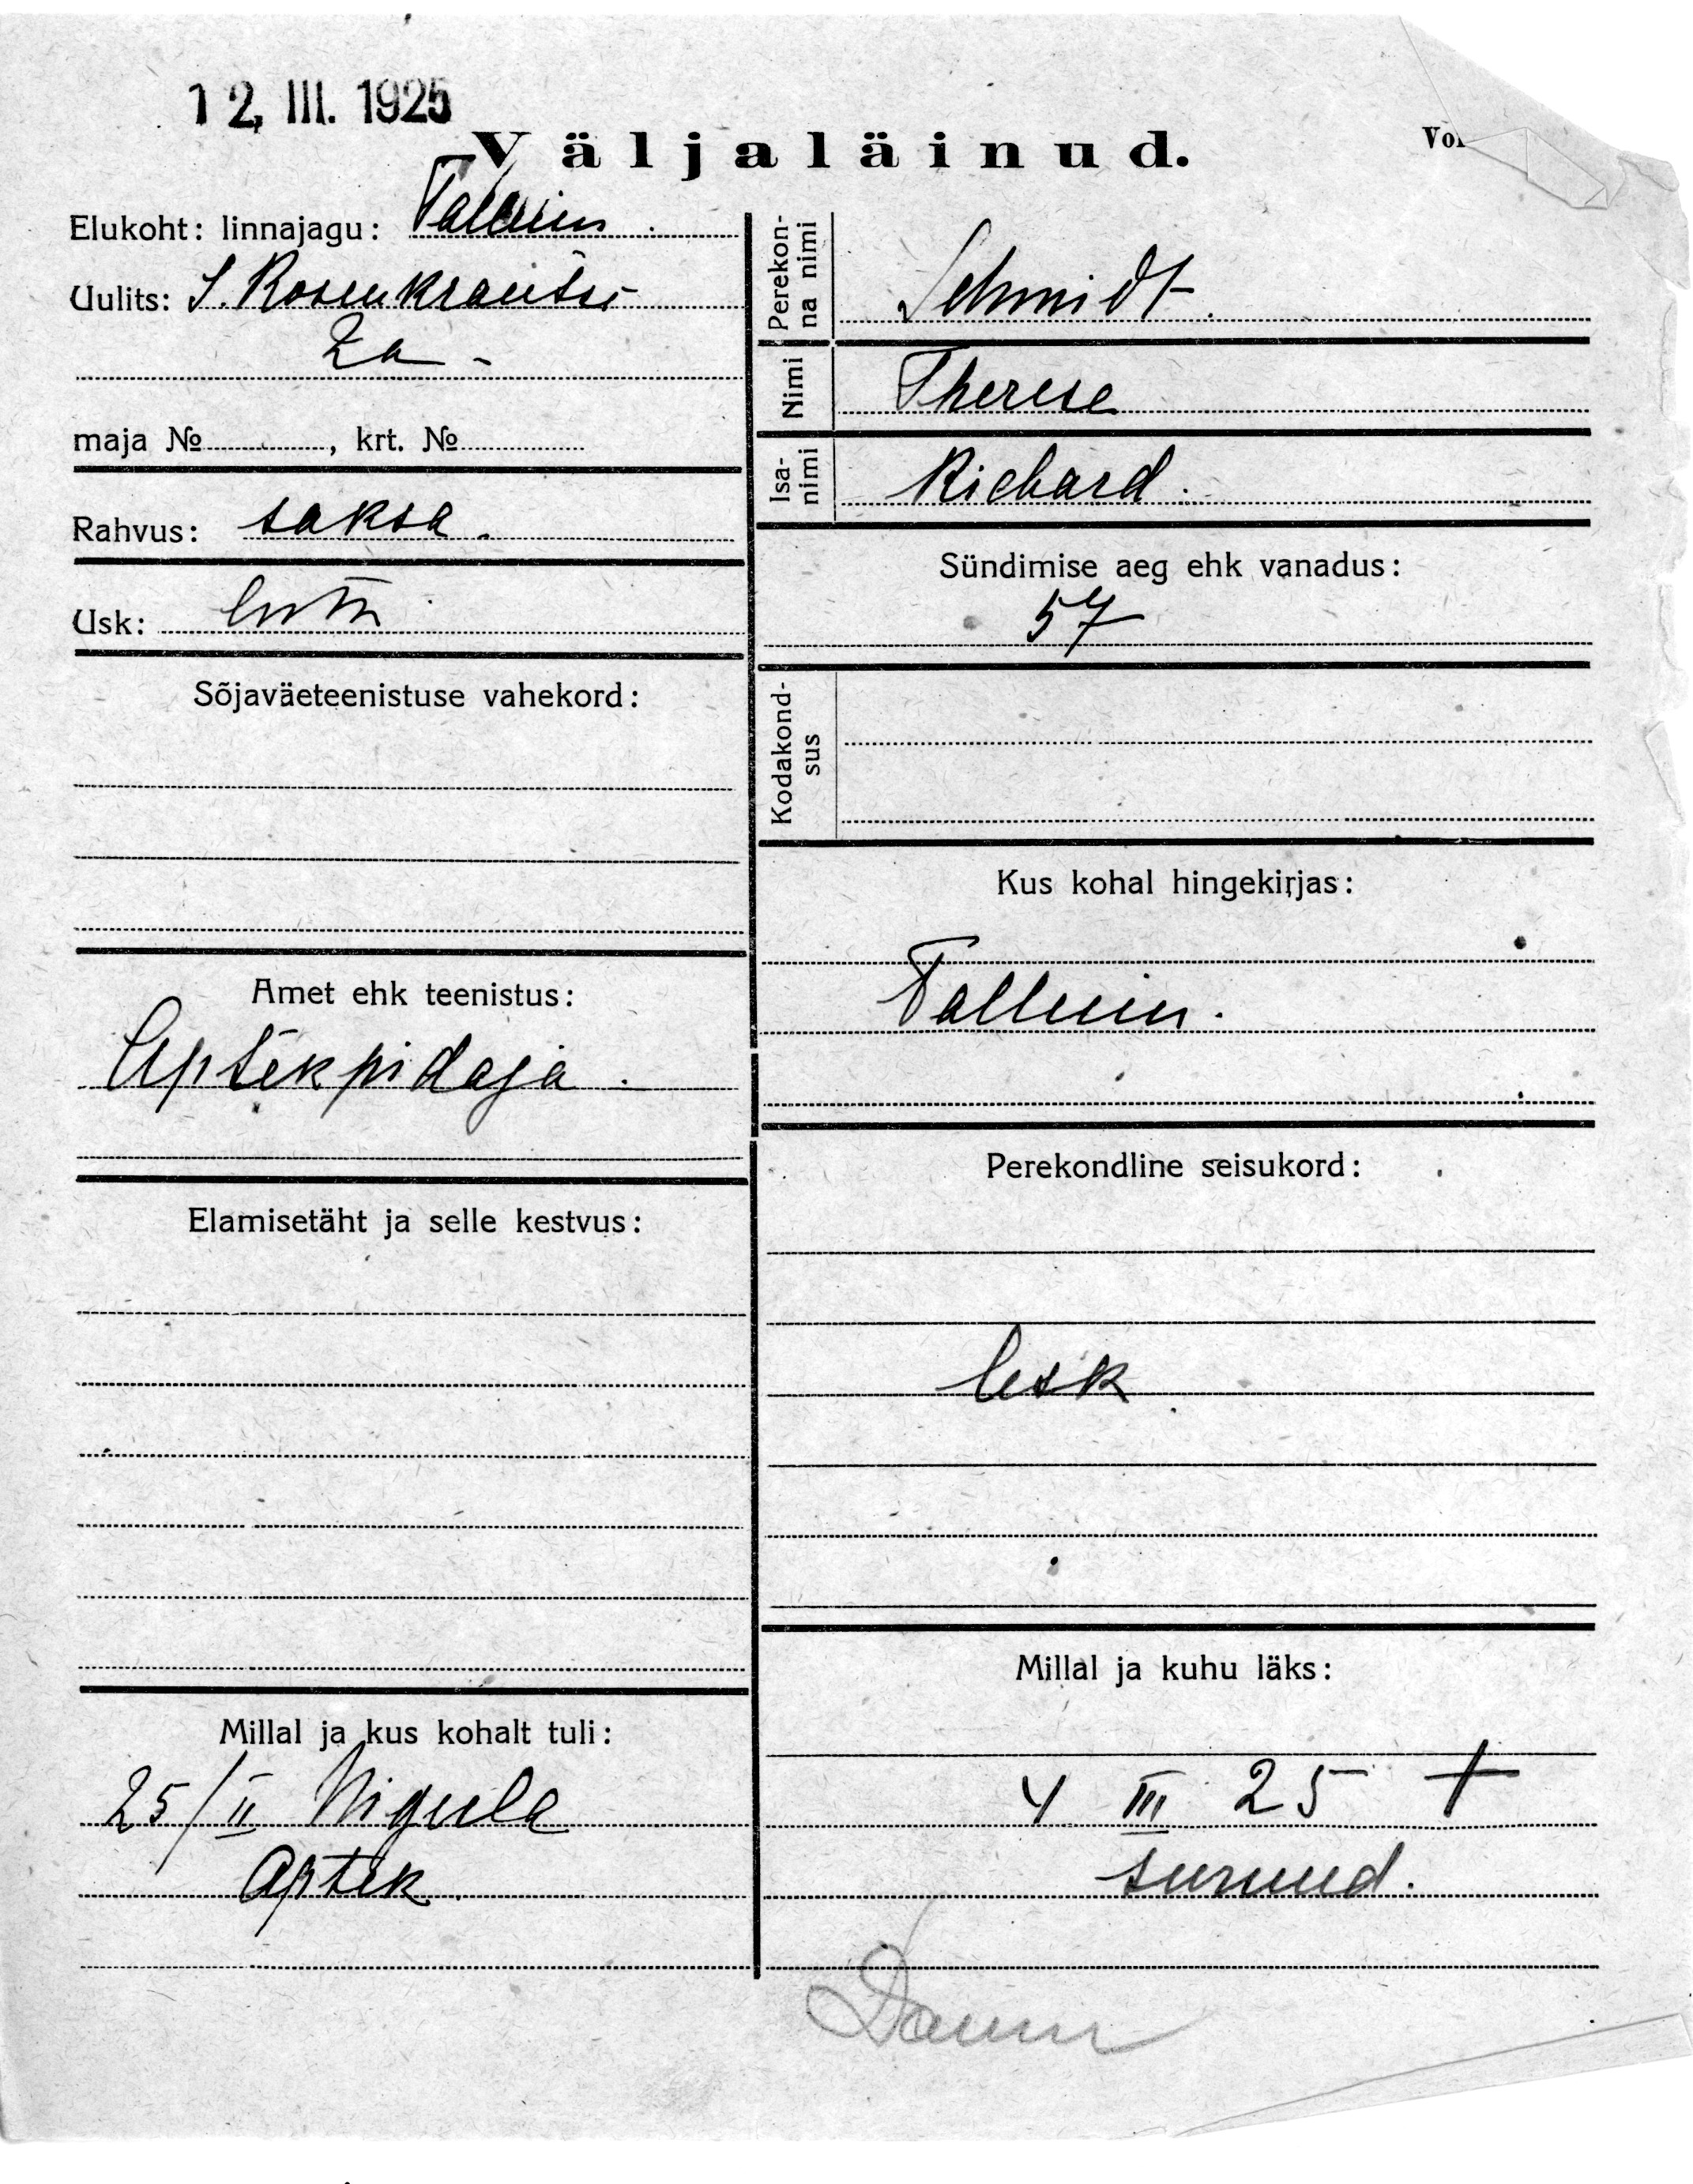 12. III. 1925
Väljaläinud.
Elukoht: linnajagu: Tallinn.
Uulits: S. Rosenkrantsi
2a -
maja №, krt. №
Rahvus: saksa.
Usk: lutti
Sõjaväeteenistuse vahekord:
Amet ehk teenistus:
Aptekpidaja.
Elamisetäht ja selle kestvus:
Millal ja kus kohalt tuli:
25/II Nigula
Aptek.
Perekon-
na nimi
Schmidt.
Nimi Therese
Isa-
nimi
Richard.
Sündimise aeg ehk vanadus:
57
Kodakond-
sus
Kus kohal hingekirjas:
Tallinn.
Perekondline seisukord:
lesk.
Millal ja kuhu läks:
4 III 25 †
surnud.